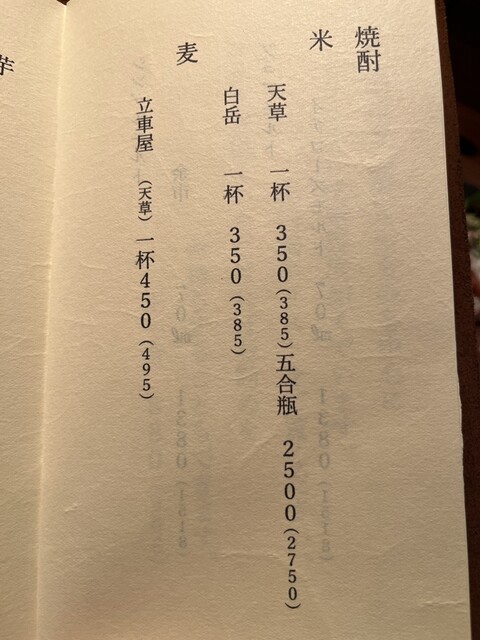 焼酎
米
天草 一杯 350(385)五合瓶 2500(2750)
白岳 一杯 350(385)
麦
立車屋 (天草)一杯450(495)
芋